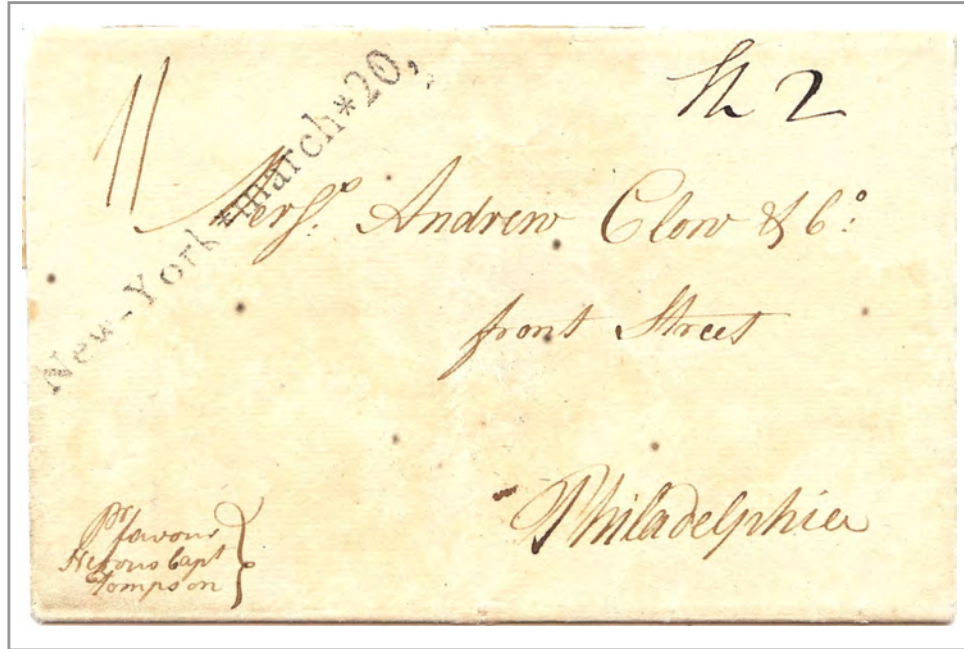 11
Sh 2
New-York*march*20,
Mersrs. Andrew Clow & Co:
front Street
Philadelphia
Pr favour
Capt
Tompson